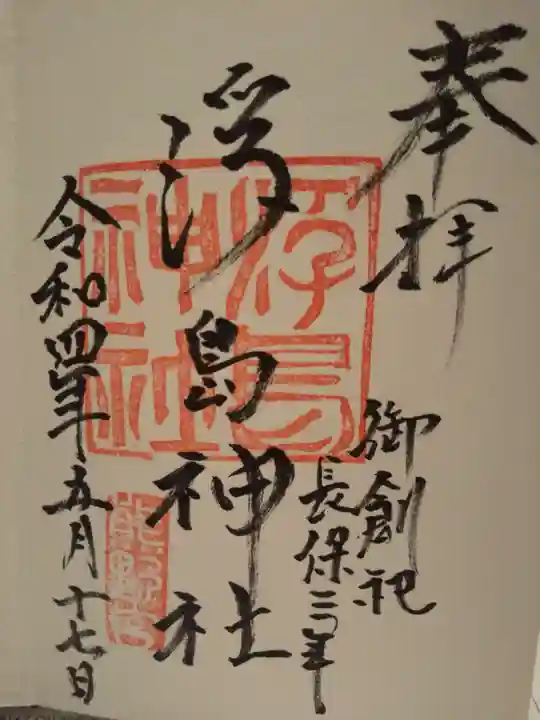 奉拝
御創祀
長保三年
浮島神社
浮島神社
令和四年五月十七日